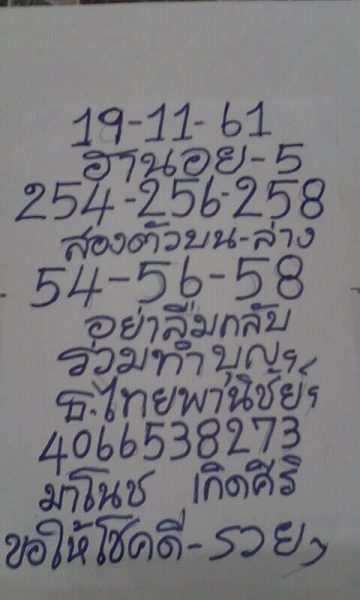 19-11-61
ฮานอย-5
254-256-258
สองตัวบน-ล่าง
54-56-58
อย่าลืมกลับ
ร่วมทำบุญฯ
ธ.ไทยพานิชย์ฯ
4066538273
มาโนช เกิดศิริ
ขอให้โชคดี-รวยๆ